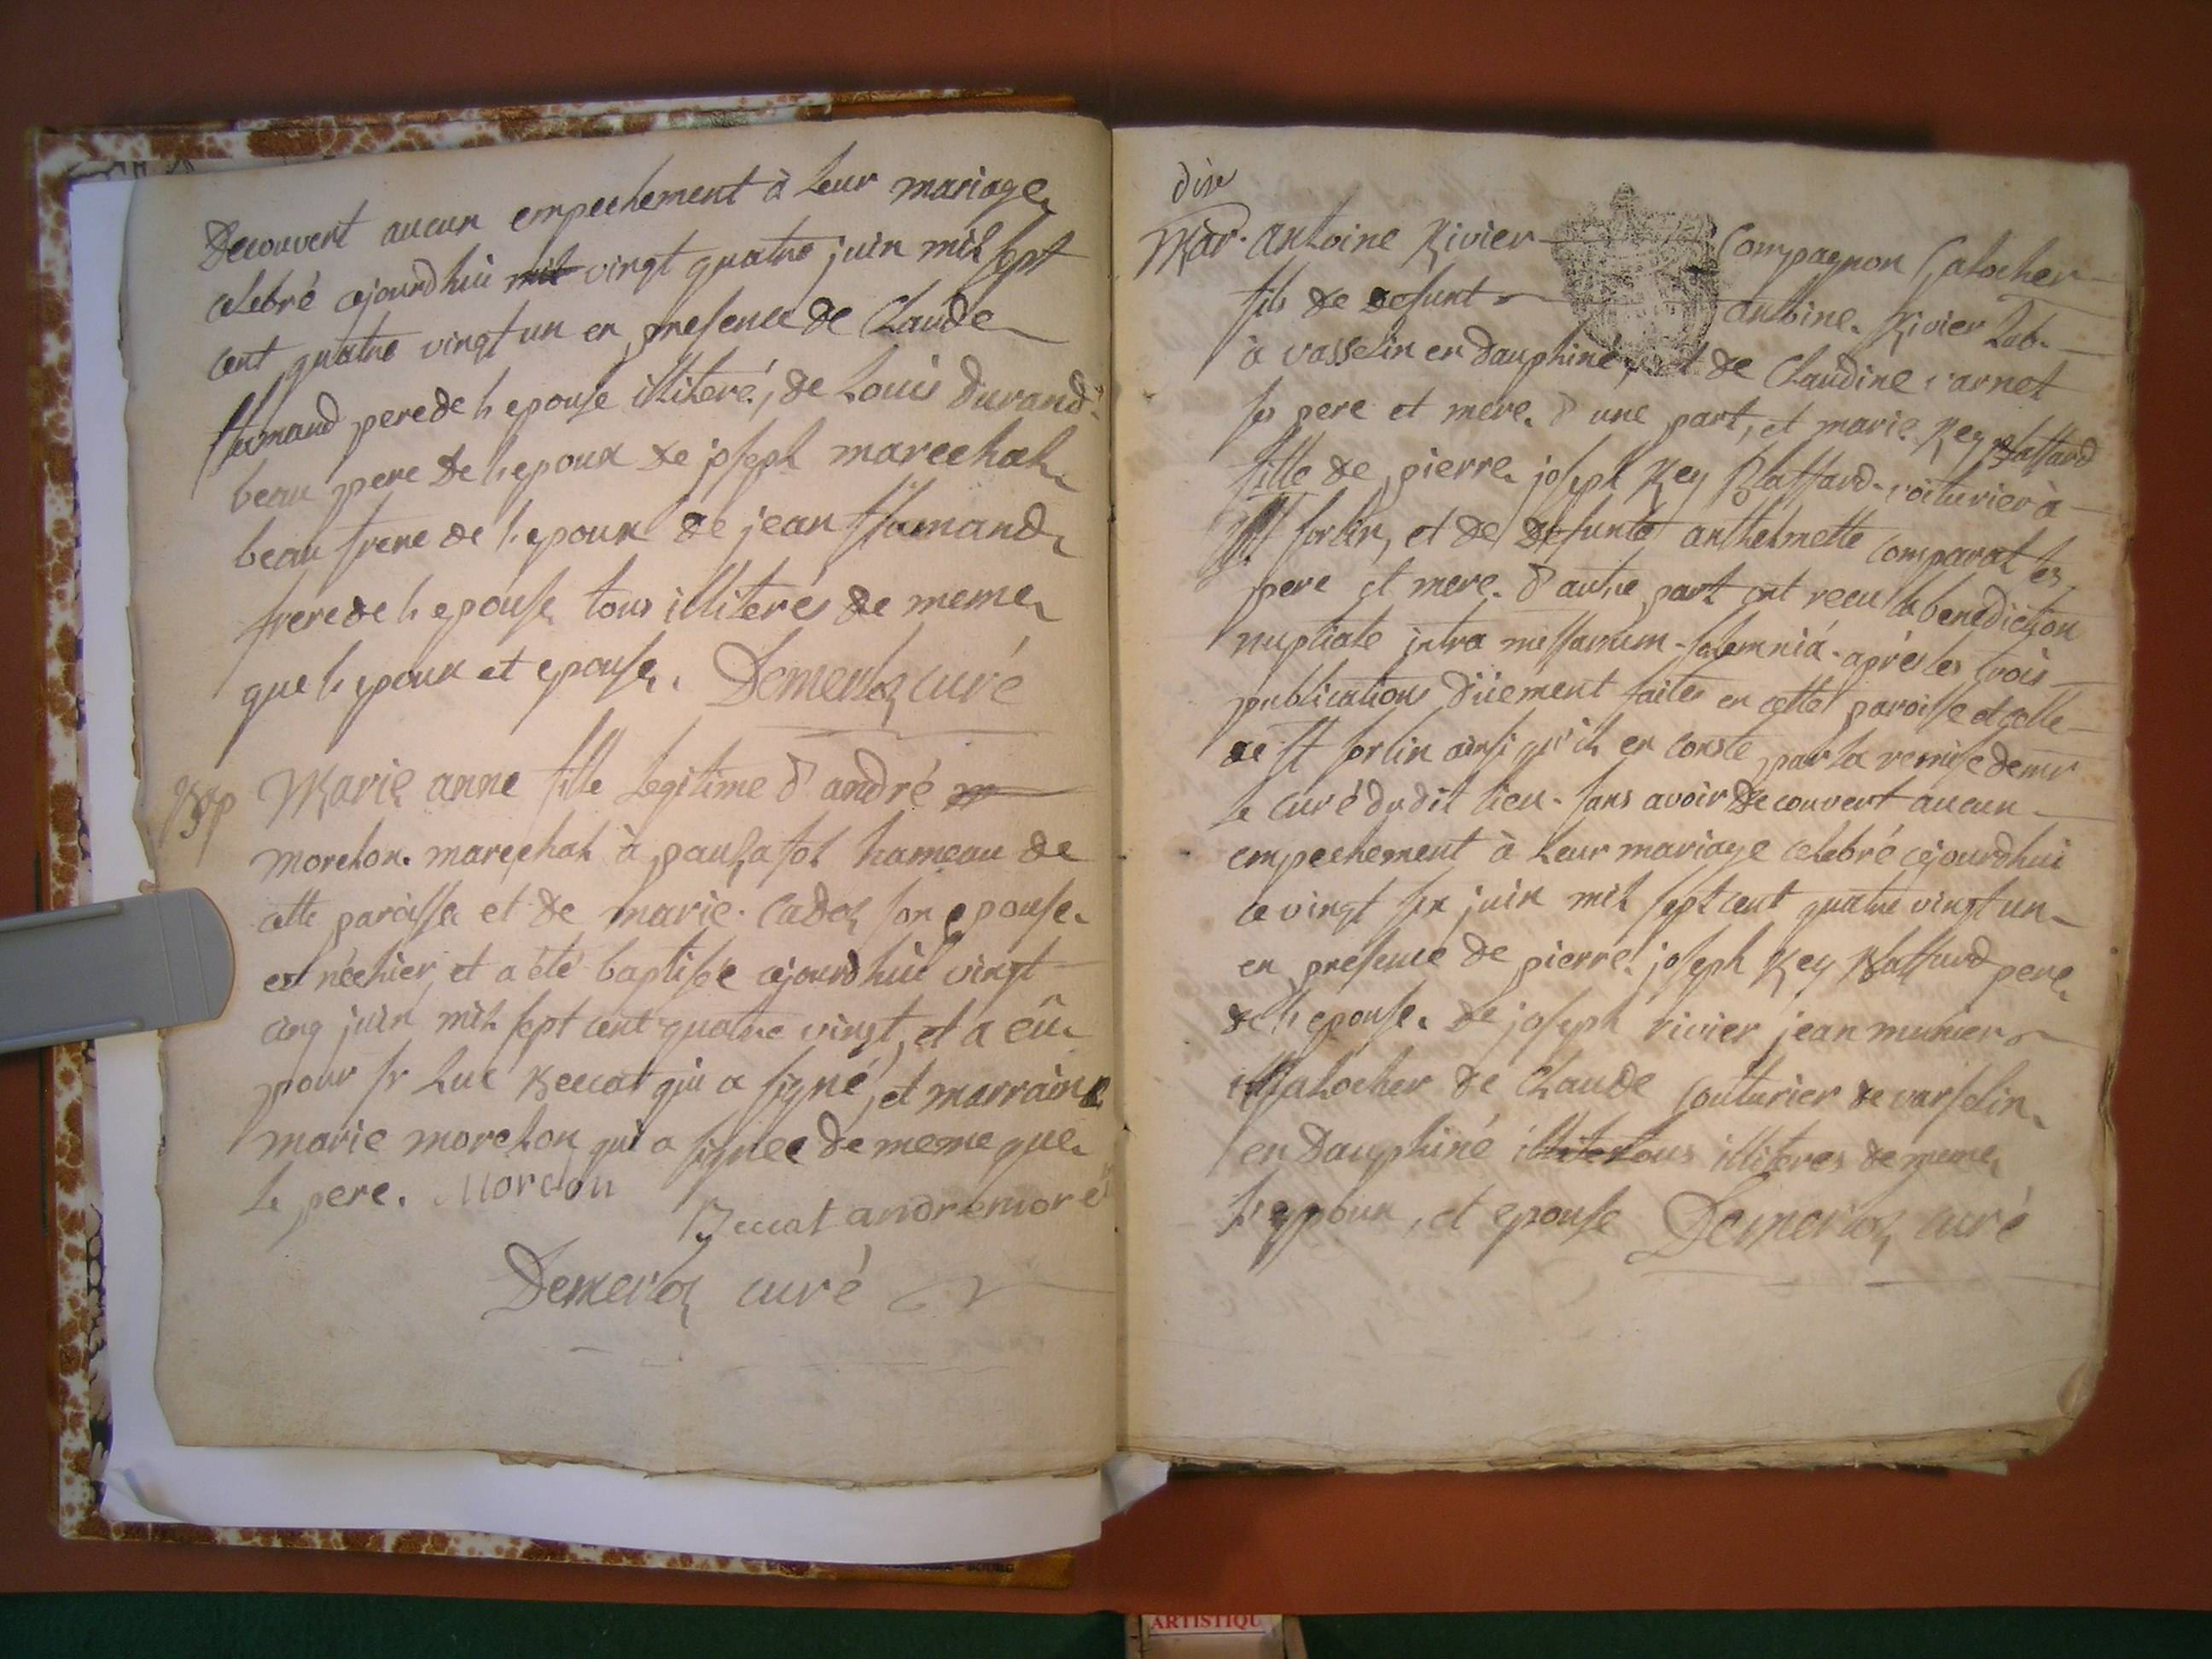 Decouvert aucun empechement à leur mariage
celebré cejourdhui mil vingt quatre juin mil sept
cent quatre vingt un en presence de Claude
flamand pere de lepouse illiteré, de Louis durand
beau pere de lepoux de joseph marechal
beau frere de lepoux de jean flamand
frere de lepouse tous illiterés de meme
que lepoux et epouse. Demerloz curé
Bap Marie anne fille legitime d'andré m
morelon marechal à pousafol hameau de
cette paroisse et de marie cadoz son epouse
est née hier, et a été baptisée cejourdhui vingt
cinq juin mil sept cent quatre vingt, et a eü
pour pr Luc Beccat qui a signé, et marraine
marie morelon qui a signée de meme que
le pere. Morelon
Beccat andre moré
Demerloz curé
dix
Mar. antoine Rivier Compagnon Galocher
fils de defunt antoine Rivier Lab.
à vasselin en dauphiné, et de Claudine varnet
ses pere et mere d'une part, et marie Rey Blassard
fille de pierre joseph Rey Blassard voiturier à
St sorlin, et de defunte anthelmette comparat ses
pere et mere d'autre part ont recu la benediction
nuptiale intra missarum solemniá après les trois
publications düement faites en cette paroisse et celle
de St sorlin ainsi qu'il en conste par la remise de mr
le curé du dit lieu sans avoir decouvert aucun
empechement à leur mariage celebré cejourdhui
ce vingt six juin mil sept cent quatre vingt un
en presence de pierre joseph Rey Blassard pere
de lepouse de joseph rivier jean munier
galocher de Claude couturier de vasselin
en Dauphiné illiter tous illiteres de meme
lepoux, et epouse Demerloz curé
ARTISTIQU